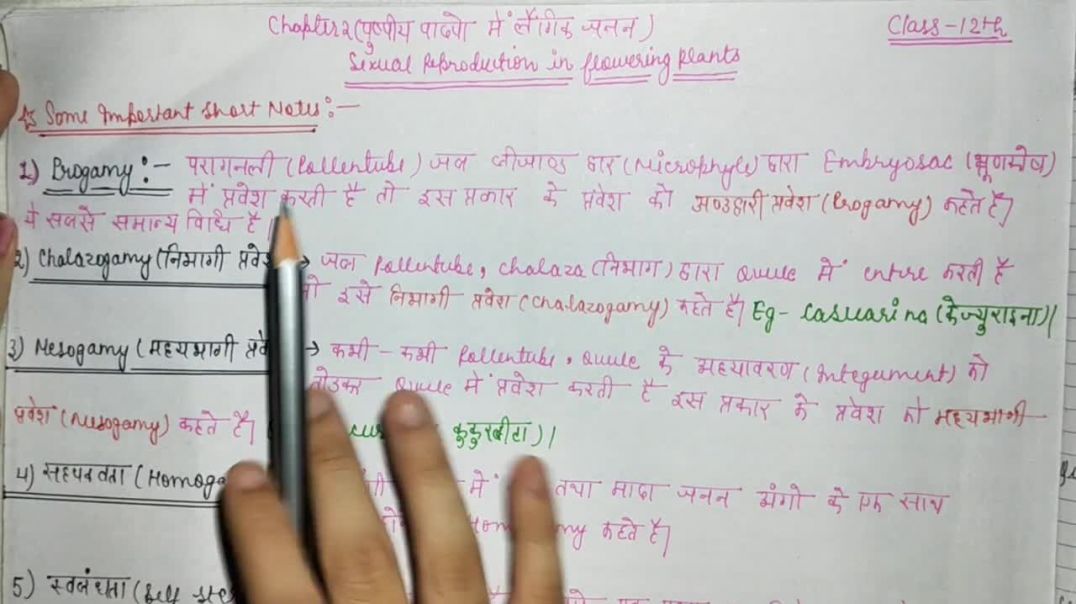 Chapter 2 (पुष्पीय पादपो में लैंगिक जनन)
Class-12th
Sexual Reproduction in flowering Plants
Some Important Short Notes:-
1) Progamy:- परागनली (Pollentube) जब बीजाण्ड द्वार (Microphyle) द्वारा Embryosac (भ्रूणकोष)
में प्रवेश करती है तो इस प्रकार के प्रवेश को अण्डद्वारी प्रवेश (Progamy) कहते है|
ये सबसे सामान्य विधि है|
2) Chalazogamy (निभागी → जब Pollentube, Chalaza (निभाग) द्वारा Ovule में enture करती है
इसे निभागी प्रवेश (Chalazogamy) कहते है| Eg- Casuarina (केज्युराइना)|
3) Mesogamy (मध्यभागी → कभी-कभी Pollentube, Ovule के मध्यावरण (Integument) को
तोडकर Ovule में प्रवेश करती है इस प्रकार के प्रवेश को मध्यभागी
प्रवेश (Mesogamy) कहते है| कुकुरबीटा)|
4) सहपक्वता में तथा मादा जनन अंगो के एक साथ
कहते है|
5) स्वबंध्यता (Self